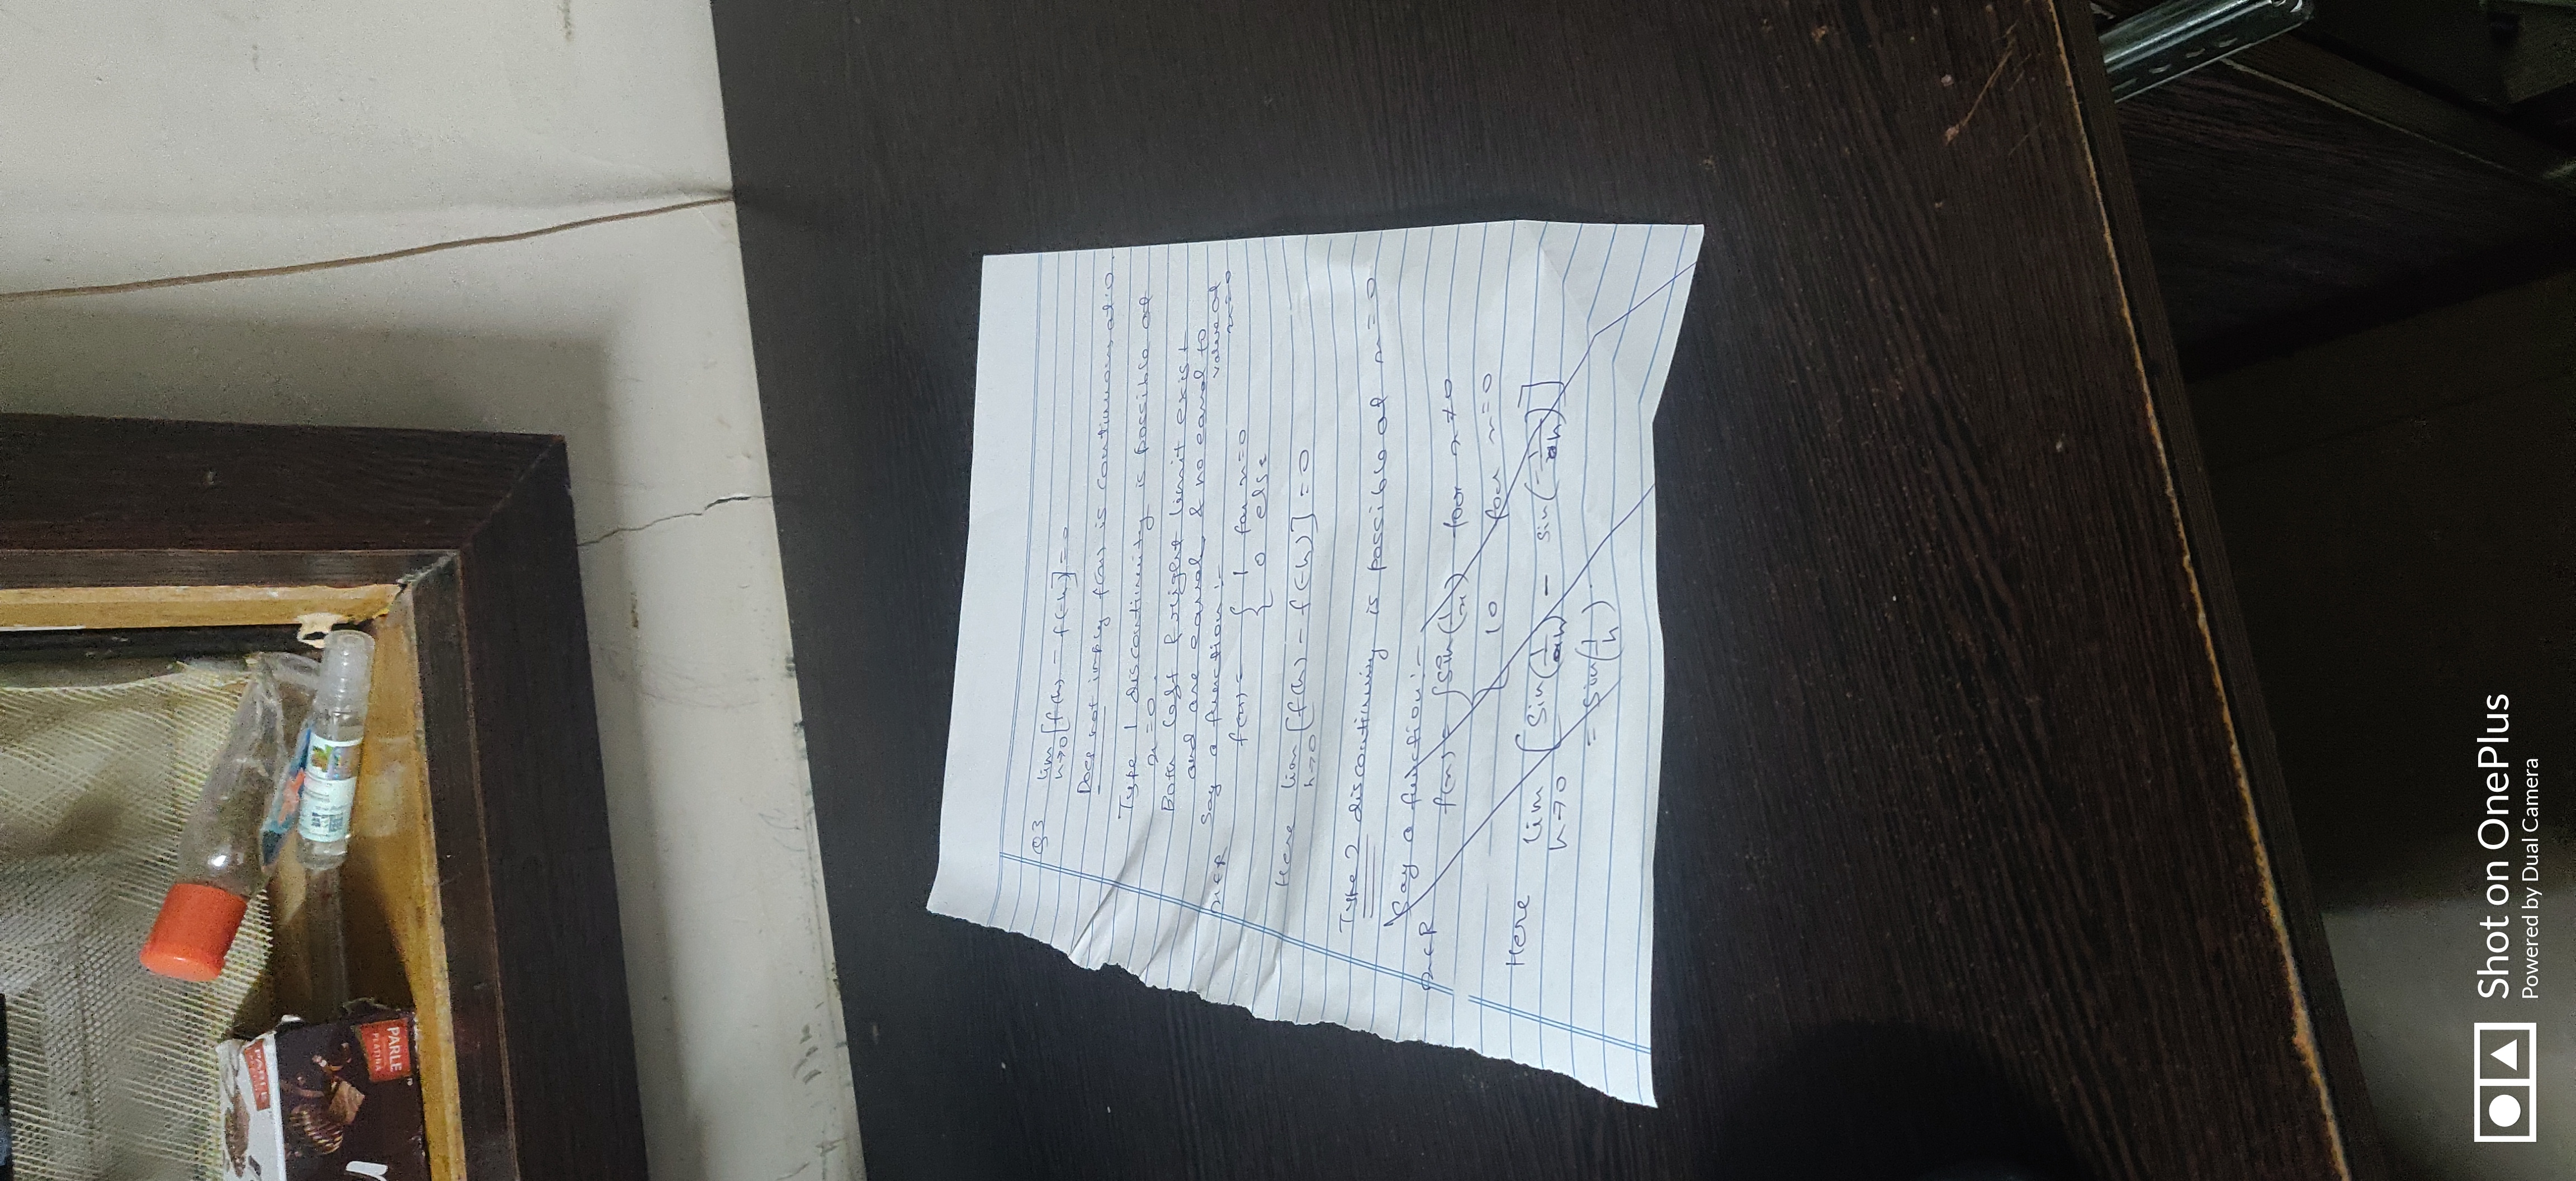 PARLE
PLATINA
PARLE
Q3 lim h→0 [f(h) - f(-h)] = 0
Does not imply f(x) is continuous at 0.
Type 1 discontinuity is possible at
x = 0.
Both left & right limit exist
and are equal & no equal to
value at
x=0
x∈R Say a function :-
f(x) = { 1 for x=0
0 else
Here lim h→0 [f(h) - f(-h)] = 0
Type 2 discontinuity is possible at x = 0
Say a function :-
x∈R f(x) = { sin(1/x) for x ≠ 0
10 for x=0
Here lim h→0 [sin(1/h) - sin(-1/h)]
= sin(1/h)
Shot on OnePlus
Powered by Dual Camera